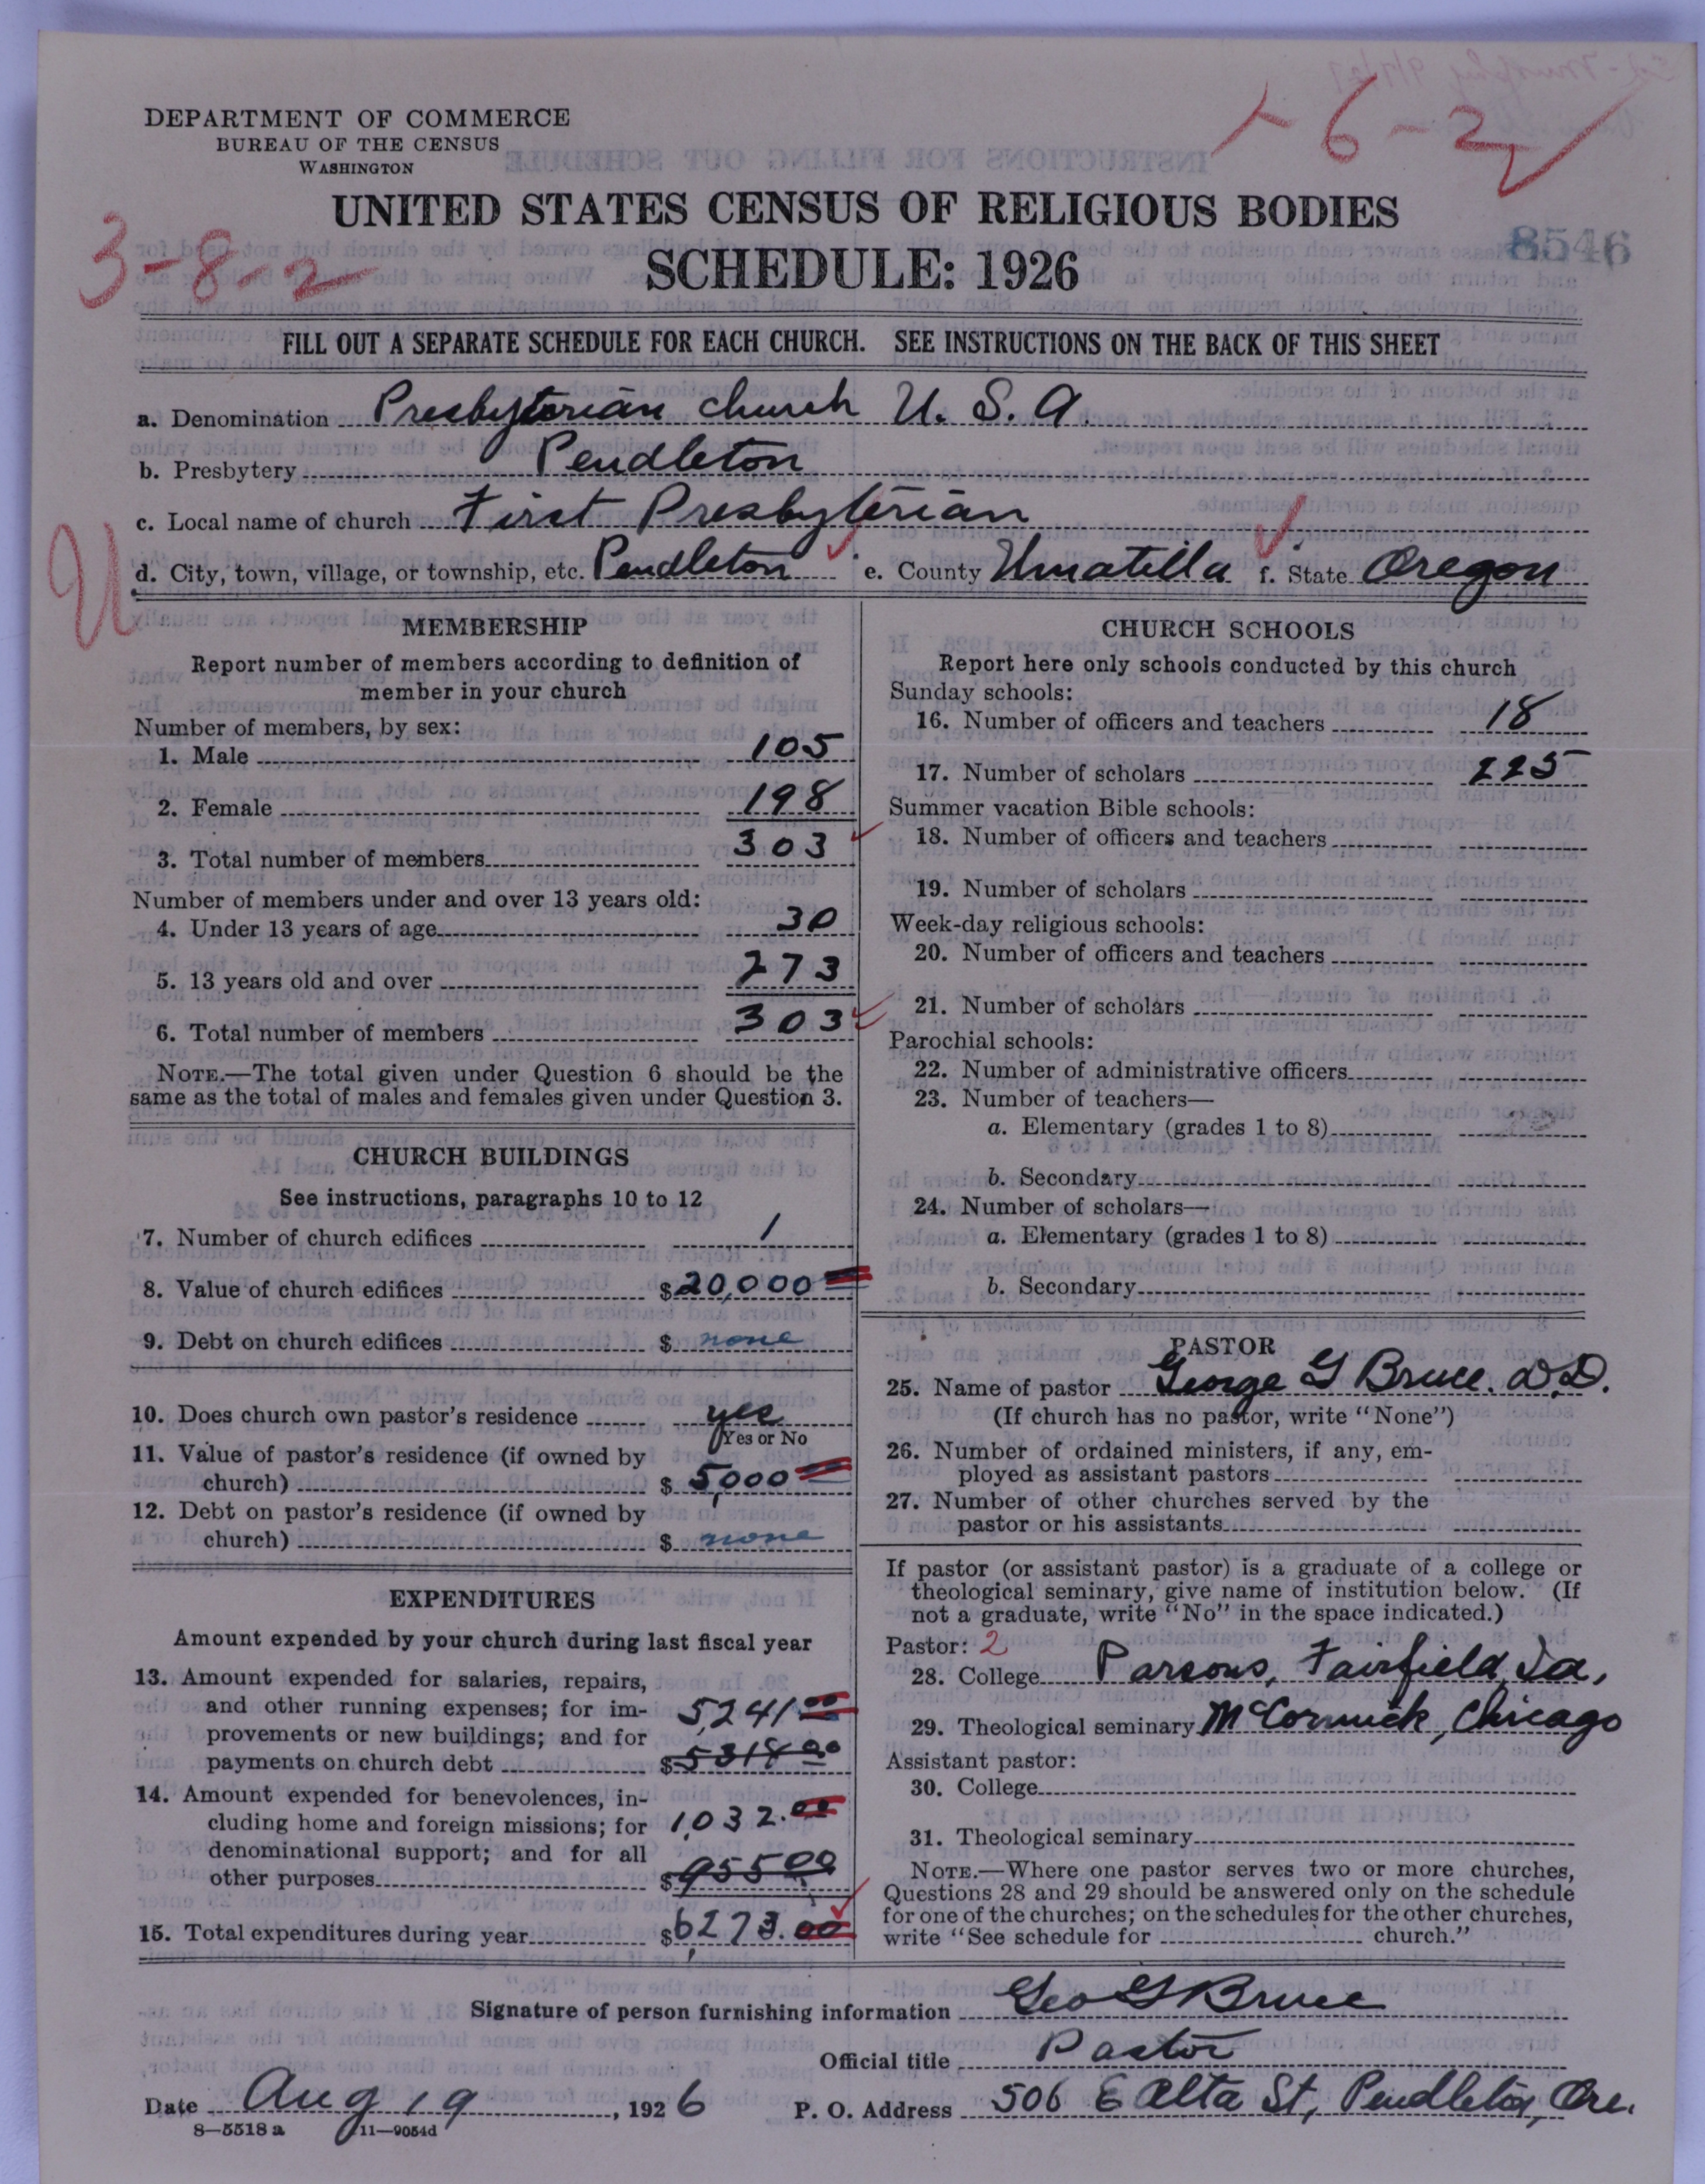 DEPARTMENT OF COMMERCE
BUREAU OF THE CENSUS
WASHINGTON
1-6-2
UNITED STATES CENSUS OF RELIGIOUS BODIES
3-8-2
SCHEDULE: 1926
8546
FILL OUT A SEPARATE SCHEDULE FOR EACH CHURCH. SEE INSTRUCTIONS ON THE BACK OF THIS SHEET
a. Denomination Presbyterian church U. S. A.
b. Presbytery Pendleton
c. Local name of church First Presbyterian
U
d. City, town, village, or township, etc. Pendleton e. County Umatilla f. State Oregon
MEMBERSHIP
Report number of members according to definition of
member in your church
Number of members, by sex:
1. Male 105
2. Female 198
3. Total number of members 303
Number of members under and over 13 years old:
4. Under 13 years of age 30
5. 13 years old and over 273
6. Total number of members 303
NOTE.—The total given under Question 6 should be the
same as the total of males and females given under Question 3.
CHURCH BUILDINGS
See instructions, paragraphs 10 to 12
7. Number of church edifices 1
8. Value of church edifices $20,000
9. Debt on church edifices $ none
10. Does church own pastor's residence yes
Yes or No
11. Value of pastor's residence (if owned by
church) $ 5,000
12. Debt on pastor's residence (if owned by
church) $ none
EXPENDITURES
Amount expended by your church during last fiscal year
13. Amount expended for salaries, repairs,
and other running expenses; for im- 5,241 00
provements or new buildings; and for
payments on church debt $5318 00
14. Amount expended for benevolences, in-
cluding home and foreign missions; for 1,032.00
denominational support; and for all
other purposes $955 00
15. Total expenditures during year $6,273.00
CHURCH SCHOOLS
Report here only schools conducted by this church
Sunday schools:
16. Number of officers and teachers 18
17. Number of scholars 225
Summer vacation Bible schools:
18. Number of officers and teachers
19. Number of scholars
Week-day religious schools:
20. Number of officers and teachers
21. Number of scholars
Parochial schools:
22. Number of administrative officers
23. Number of teachers—
a. Elementary (grades 1 to 8)
b. Secondary
24. Number of scholars—
a. Elementary (grades 1 to 8)
b. Secondary
PASTOR
25. Name of pastor George G Bruce. D.D.
(If church has no pastor, write "None")
26. Number of ordained ministers, if any, em-
ployed as assistant pastors
27. Number of other churches served by the
pastor or his assistants
If pastor (or assistant pastor) is a graduate of a college or
theological seminary, give name of institution below. (If
not a graduate, write "No" in the space indicated.)
Pastor: 2
28. College Parsons, Fairfield, Ia,
29. Theological seminary McCormick, Chicago
Assistant pastor:
30. College
31. Theological seminary
NOTE.—Where one pastor serves two or more churches,
Questions 28 and 29 should be answered only on the schedule
for one of the churches; on the schedules for the other churches,
write "See schedule for church."
Signature of person furnishing information Geo G Bruce
Official title Pastor
Date Aug 19, 1926 P. O. Address 506 E Alta St, Pendleton, Ore.
8—5518 a 11—9054d